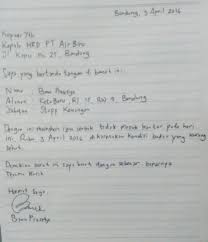 Bandung, 3 April 2016
Kepada Yth
Kepala HRD PT Air Biru
Jl Kopo No 25, Bandung
Saya yang bertanda tangan di bawah ini:
Nama : Bima Prasetya
Alamat : Kota Baru, RT 15, RW 9, Bandung
Jabatan : Staff Keuangan
Dengan ini memohon izin untuk tidak masuk kantor pada hari
ini, Rabu 3 April 2016 dikarenakan kondisi badan yang kurang
sehat.
Demikian surat ini saya buat dengan sebenar benarnya
Terima Kasih
Hormat Saya
Bima Prasetya